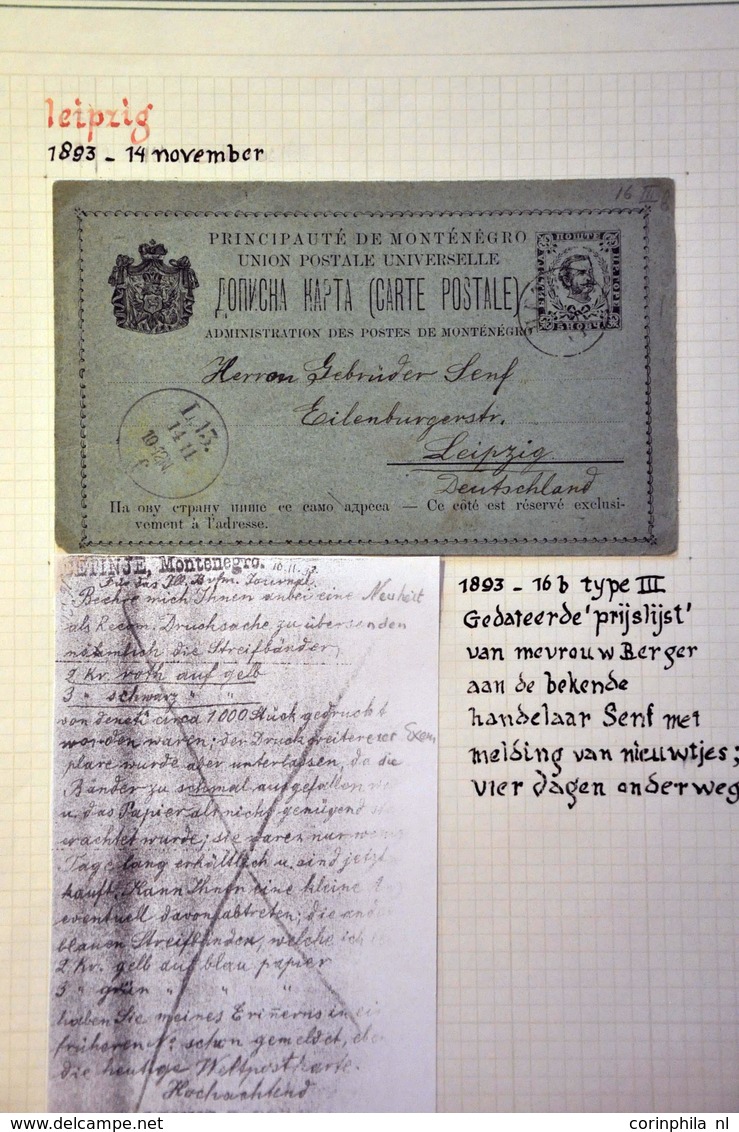 leipzig
1893 - 14 november
16 III
PRINCIPAUTÉ DE MONTÉNÉGRO
UNION POSTALE UNIVERSELLE
ДОПИСНА КАРТА (CARTE POSTALE)
ADMINISTRATION DES POSTES DE MONTÉNÉGRO
ПОШТЕ
Herren Gebrüder Senf
Eilenburgerstr.
Leipzig
Deutschland
L. 13.
14 11
На ову страну пише се само адреса — Ce côté est réservé exclusi-
vement à l'adresse.
ETINJE, Montenegro.
Für das Ill. Brfm. Journal.
Beehre mich Ihnen anbei eine Neuheit
als Recom. Drucksache zu übersenden
nämlich die Streifbänder
2 Kr. roth auf gelb
3 " schwarz " "
von denen circa 1000 Stück gedruckt
worden waren; der Druck weiterer Exem
plare wurde aber unterlassen, da die
Bänder zu schmal ausgefallen
u. das Papier als nicht genügend
erachtet wurde; sie waren nur
Tage lang erhältlich u. sind jetzt
kauft. Kann Ihnen eine kleine
eventuell davon abtreten; die
blauen Streifbänder, welche ich
2 Kr. gelb auf blau papier
3 " grün " " "
haben Sie meines Erinnerns in
früheren No schon gemeldet,
die heutige Weltpostkarte.
Hochachtend
1893 - 16b type III
Gedateerde 'prijslijst'
van mevrouw Berger
aan de bekende
handelaar Senf met
melding van nieuwtjes;
vier dagen onderweg
corinphila nl